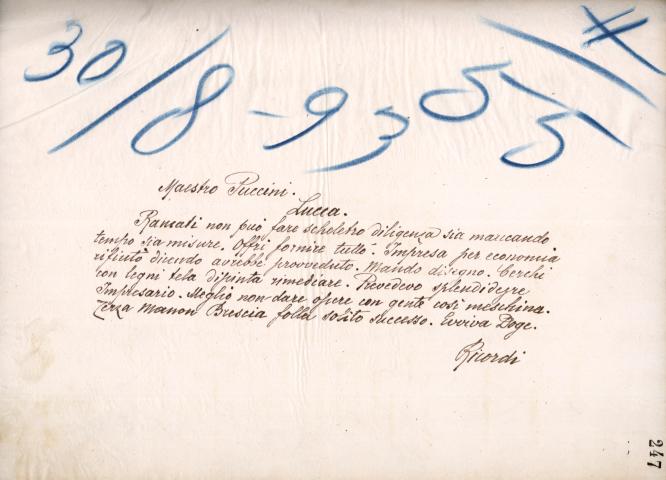 30/8-93 55/#
Maestro Puccini.
Lucca.
Ransati non può fare scheletro diligenza sia mancando
tempo sia misure. Offrì fornire tutto. Impresa per economia
rifiutò dicendo avrebbe provveduto. Mando disegno. Cerchi
con legni tela dipinta rimediare. Prevedevo
Impresario. Meglio non dare opere con gente così meschina.
Terza Manon Brescia folla solito successo. Evviva Doge.
Ricordi
247